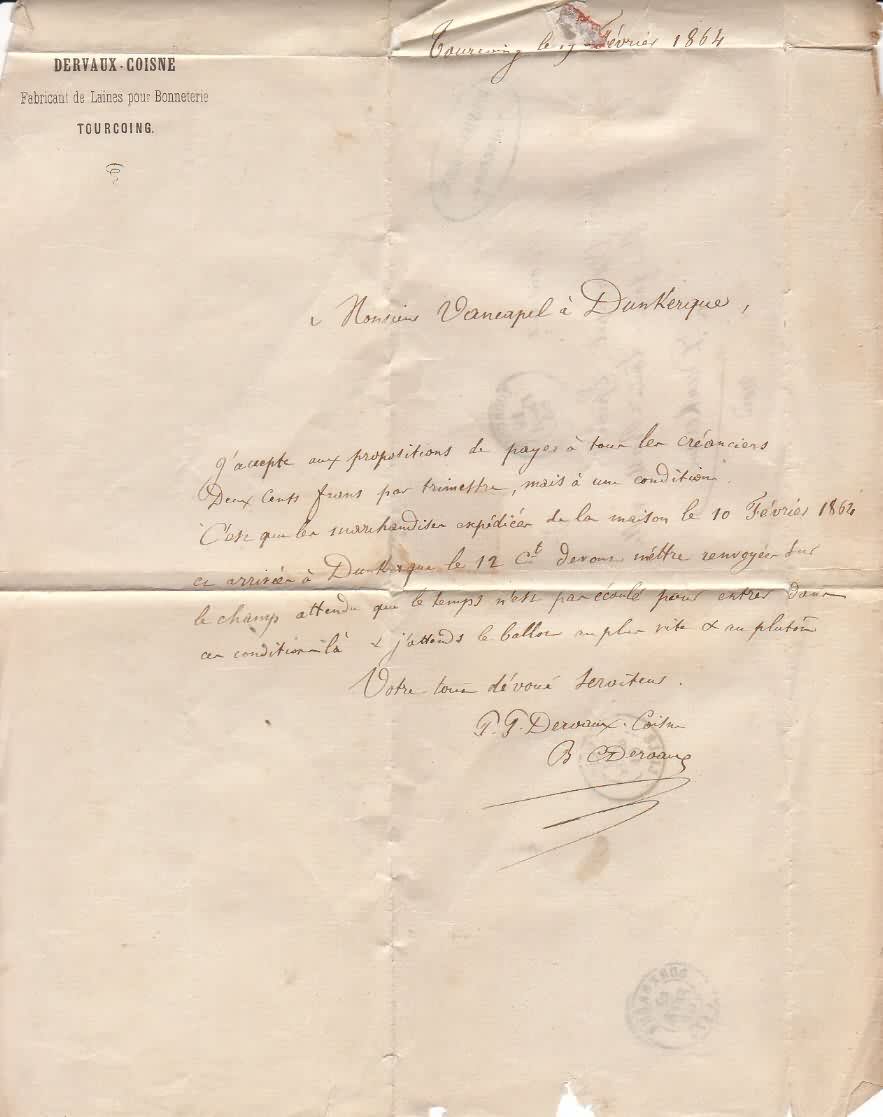 DERVAUX-COISNE
Fabricant de Laines pour Bonneterie
TOURCOING.
Tourcoing le 19 Février 1864
Monsieur Vancapel à Dunkerque,
J'accepte aux propositions de payer à tous les créanciers
Deux Cents frans par trimestre, mais à une condition.
C'est que les marchandises expédiées de la maison le 10 Février 1864
et arrivées à Dunkerque le 12 Ct devons mêttre renvoyées sur
le champ attendu que le temps n'est pas écoulé pour entrer dans
ces conditions là & j'attends le ballot au plus vite & au plutôt
Votre tout dévoué Serviteur.
P. P. Dervaux-Coisne
B Dervaux